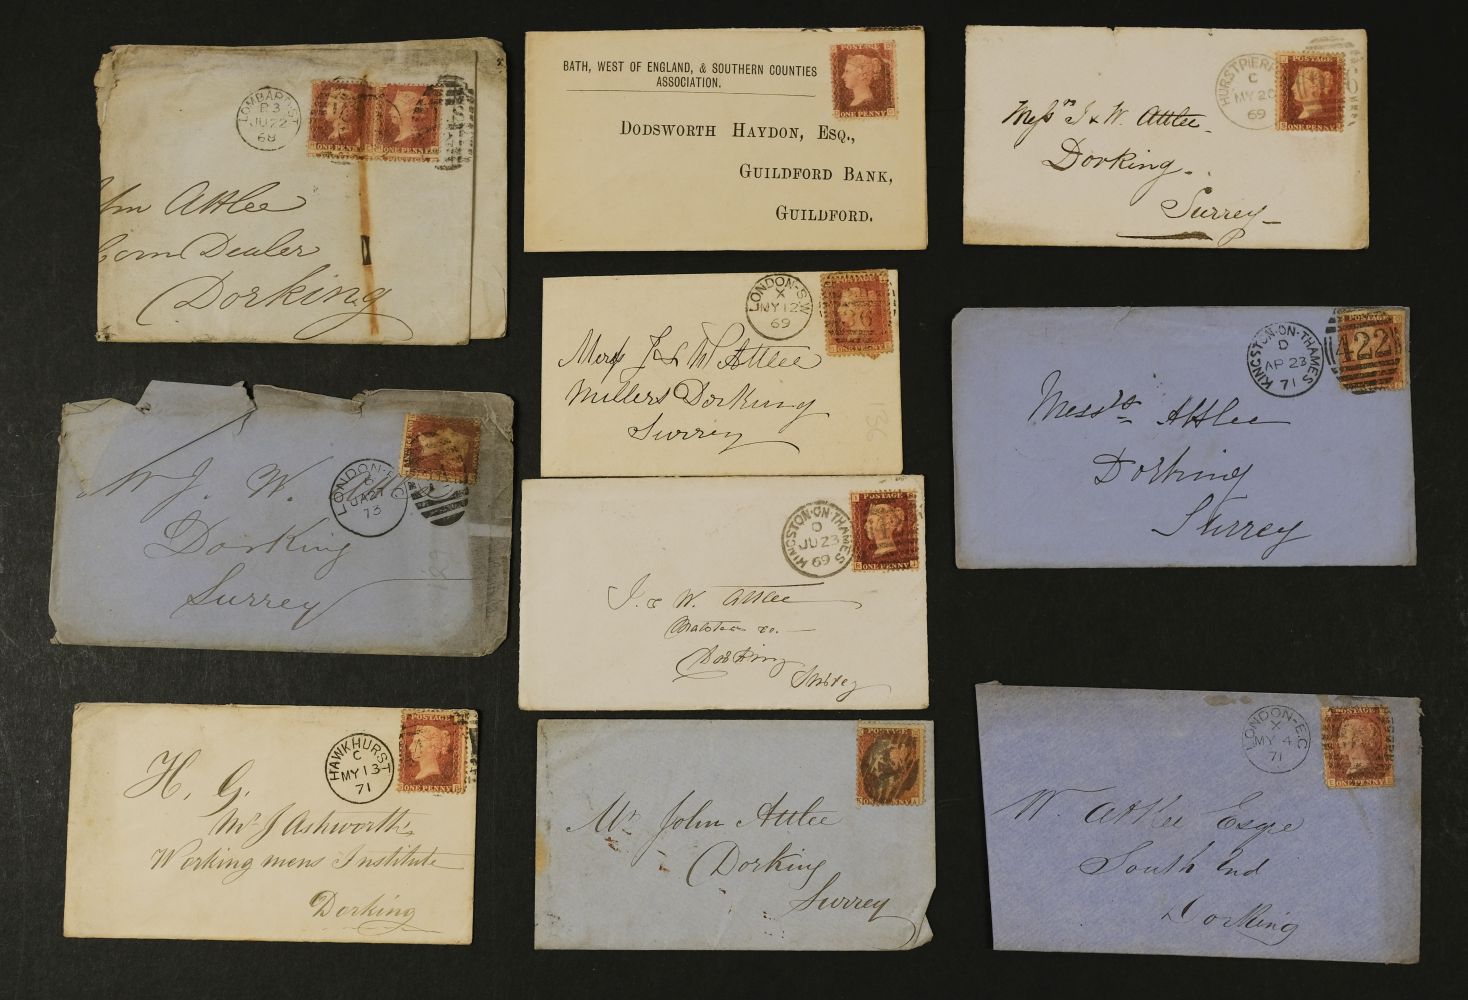 LOMBARD-ST
B3
JU 22
68
ONE PENNY
ONE PENNY
POSTAGE
Attlee
Corn Dealer
Dorking
BATH, WEST OF ENGLAND, & SOUTHERN COUNTIES
ASSOCIATION.
POSTAGE
ONE PENNY
DODSWORTH HAYDON, ESQ.,
GUILDFORD BANK,
GUILDFORD.
HURSTPIERP
C
MY 20
69
POSTAGE
ONE PENNY
Messrs J & W Attlee
Dorking
Surrey
LONDON-S.W
X
MY 12
69
36
ONE PENNY
Messrs J & W Attlee
Millers Dorking
Surrey
136
KINGSTON-ON-THAMES
D
AP 23
71
422
Messrs Attlee
Dorking
Surrey
LONDON-E.C
6
JA 27
73
J. W.
Dorking
Surrey
KINGSTON-ON-THAMES
D
JU 23
69
POSTAGE
ONE PENNY
J. & W. Attlee
Dorking
Surrey
HAWKHURST
C
MY 13
71
POSTAGE
ONE PENNY
H. G.
Mr J Ashworth
Working mens Institute
Dorking
POSTAGE
ONE PENNY
Mr John Attlee
Dorking
Surrey
LONDON-E.C
X
MY 4
71
POSTAGE
ONE PENNY
W Attlee Esqre
South End
Dorking